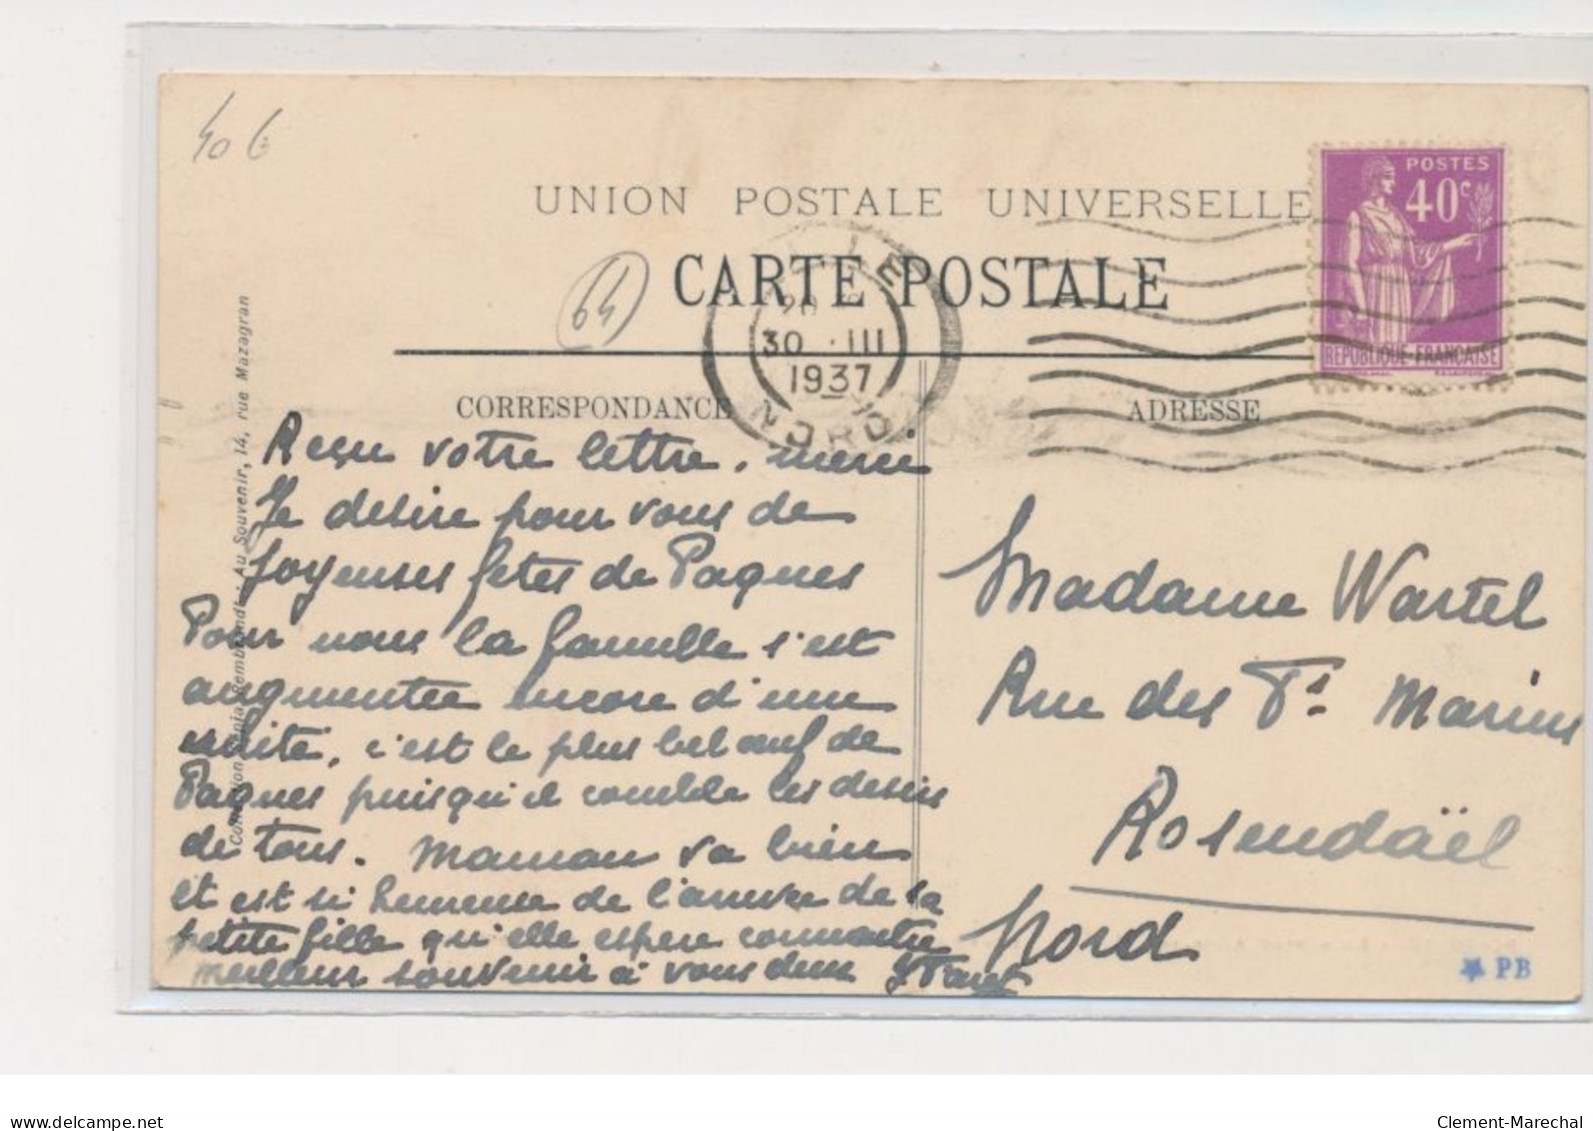 40 €
UNION POSTALE UNIVERSELLE
CARTE POSTALE
64
LILLE
30 · III
1937
NORD
POSTES
40c
REPUBLIQUE-FRANCAISE
CORRESPONDANCE
ADRESSE
Reçu votre lettre, merci
Je désire pour vous de
Joyeuses fetes de Paques
Pour nous la famille s'est
augmentée encore d'une
unité, c'est le plus bel oeuf de
Paques puisqu'il comble les desirs
de tous. Maman va bien
et est si heureuse de l'arrivée de la
petite fille qu'elle espere connaitre
meilleur souvenir à vous deux
Madame Wartel
Rue des Ts. Marins
Rosendaël
Nord
Collection Sépia Rembrandt - Au Souvenir, 14, rue Mazagran
PB
www.delcampe.net
Clement-Marechal